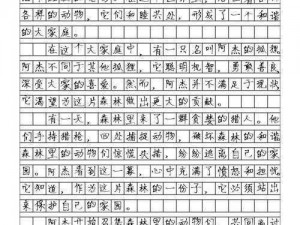 各样的动物，它们和睦共处，形成了一个和谐
的大家庭。
在这个大家庭中，有一只名叫阿杰的狐狸。
阿杰不同于其他狐狸，它聪明机智，勇敢善良，
深受大家的喜爱。然而，阿杰并不满足于现状，
它渴望为这片森林做出更大的贡献。
有一天，森林里来了一群贪婪的猎人。他
们手持猎枪，四处捕捉动物，破坏森林的和谐。
森林里的动物们惊慌失措，纷纷逃离自己的家
园。阿杰看到这一幕，心中充满了愤怒和担忧。
它知道，作为这片森林的一份子，它必须站出
来保护自己的家园。
阿杰开始召集森林里的动物们，共同商讨